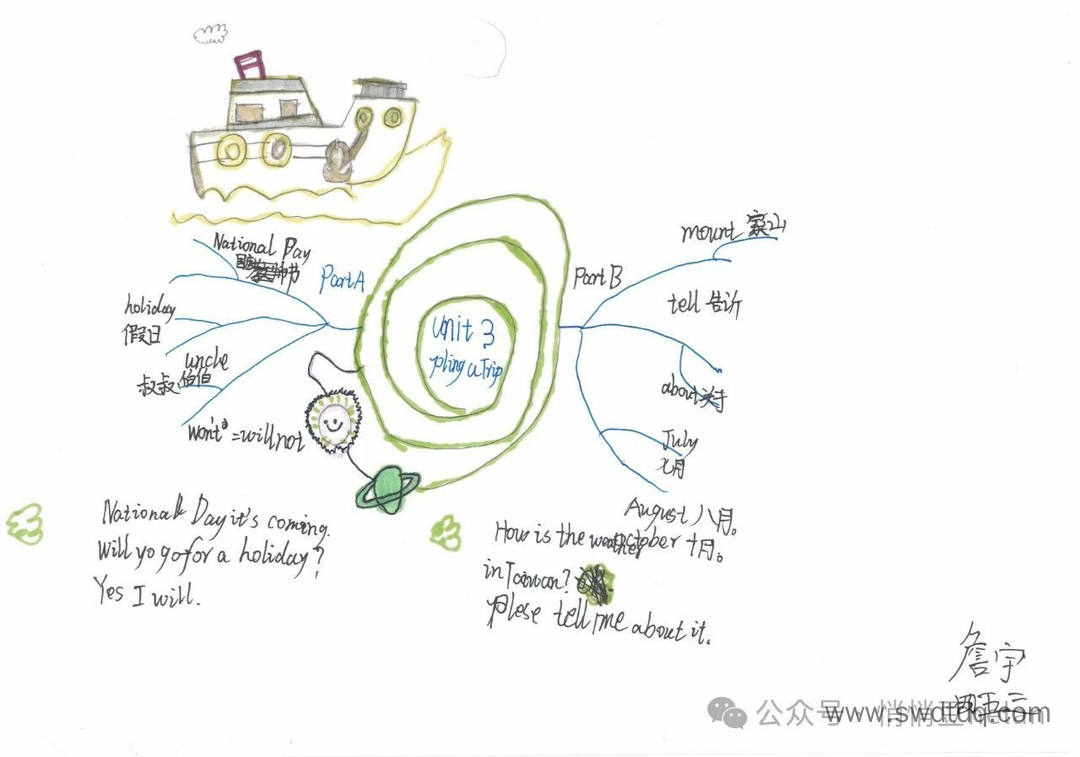 National Day
holiday
假日
uncle
叔叔 伯伯
won't =will not
Part A
Unit 3
pling a Trip
Part B
mount 家山
tell 告诉
about 关于
July
七月
August 八月。
October 十月。
National Day it's coming.
will yo go for a holiday?
Yes I will.
How is the weather
in Taiwan?
plese tell me about it.
詹宇
公众号
www.swdtdq.com